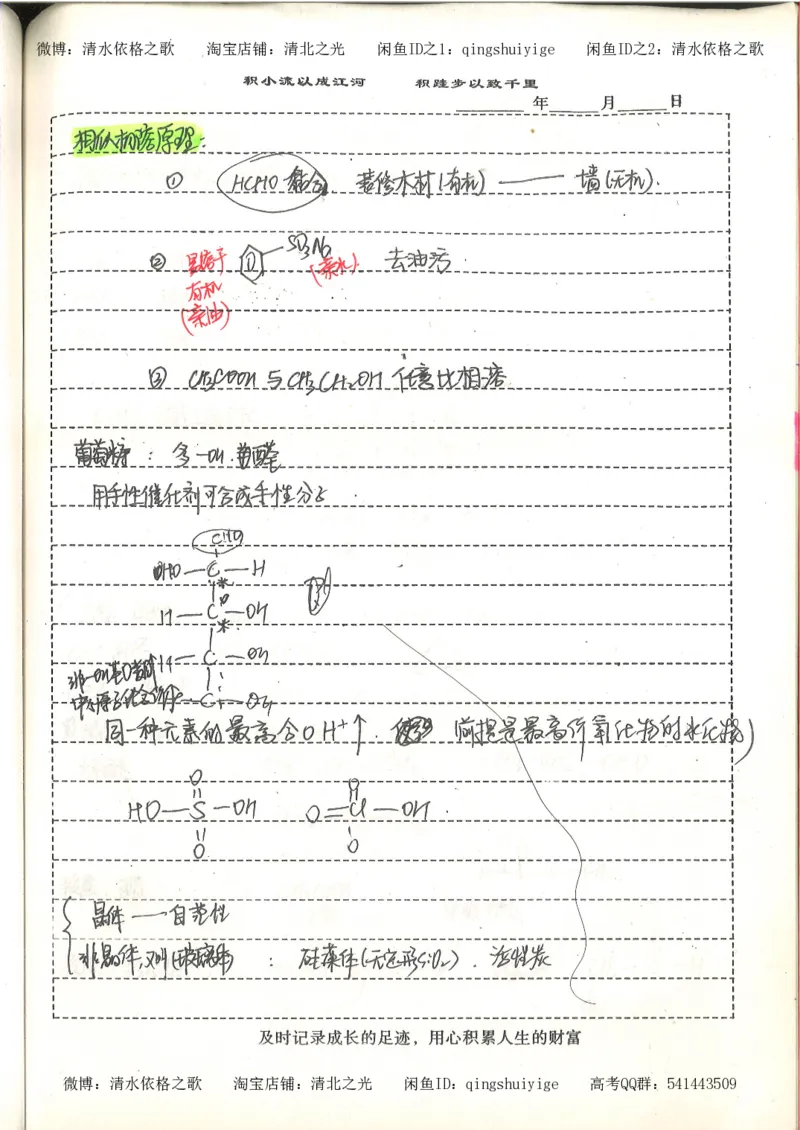 微博：清水依格之歌 淘宝店铺：清北之光 闲鱼ID之1：qingshuiyige 闲鱼ID之2：清水依格之歌
积小流以成江河 积跬步以致千里
年 月 日
相似相溶原理：
① HCHO 黏合 装修木材(有机) —— 墙(无机).
② 易溶于 SO3Na (亲水). 去油污.
有机
(亲油)
③ CH3COOH 与 CH3CH2OH 任意比相溶
葡萄糖： 多-OH 醛
用手性催化剂可合成手性分子.
CHO
HO—C—H
*
H—C—OH
*
H—C—OH
C—OH
同一种元素的最高含O H+↑. 前提是最高价氧化物的水化物)
O
HO—S—OH O=Cl—OH.
O
O
晶体——自范性
非晶体,又叫(玻璃体)： 硅藻体(无定形SiO2). 活性炭
及时记录成长的足迹，用心积累人生的财富
微博：清水依格之歌 淘宝店铺：清北之光 闲鱼ID：qingshuiyige 高考QQ群：541443509